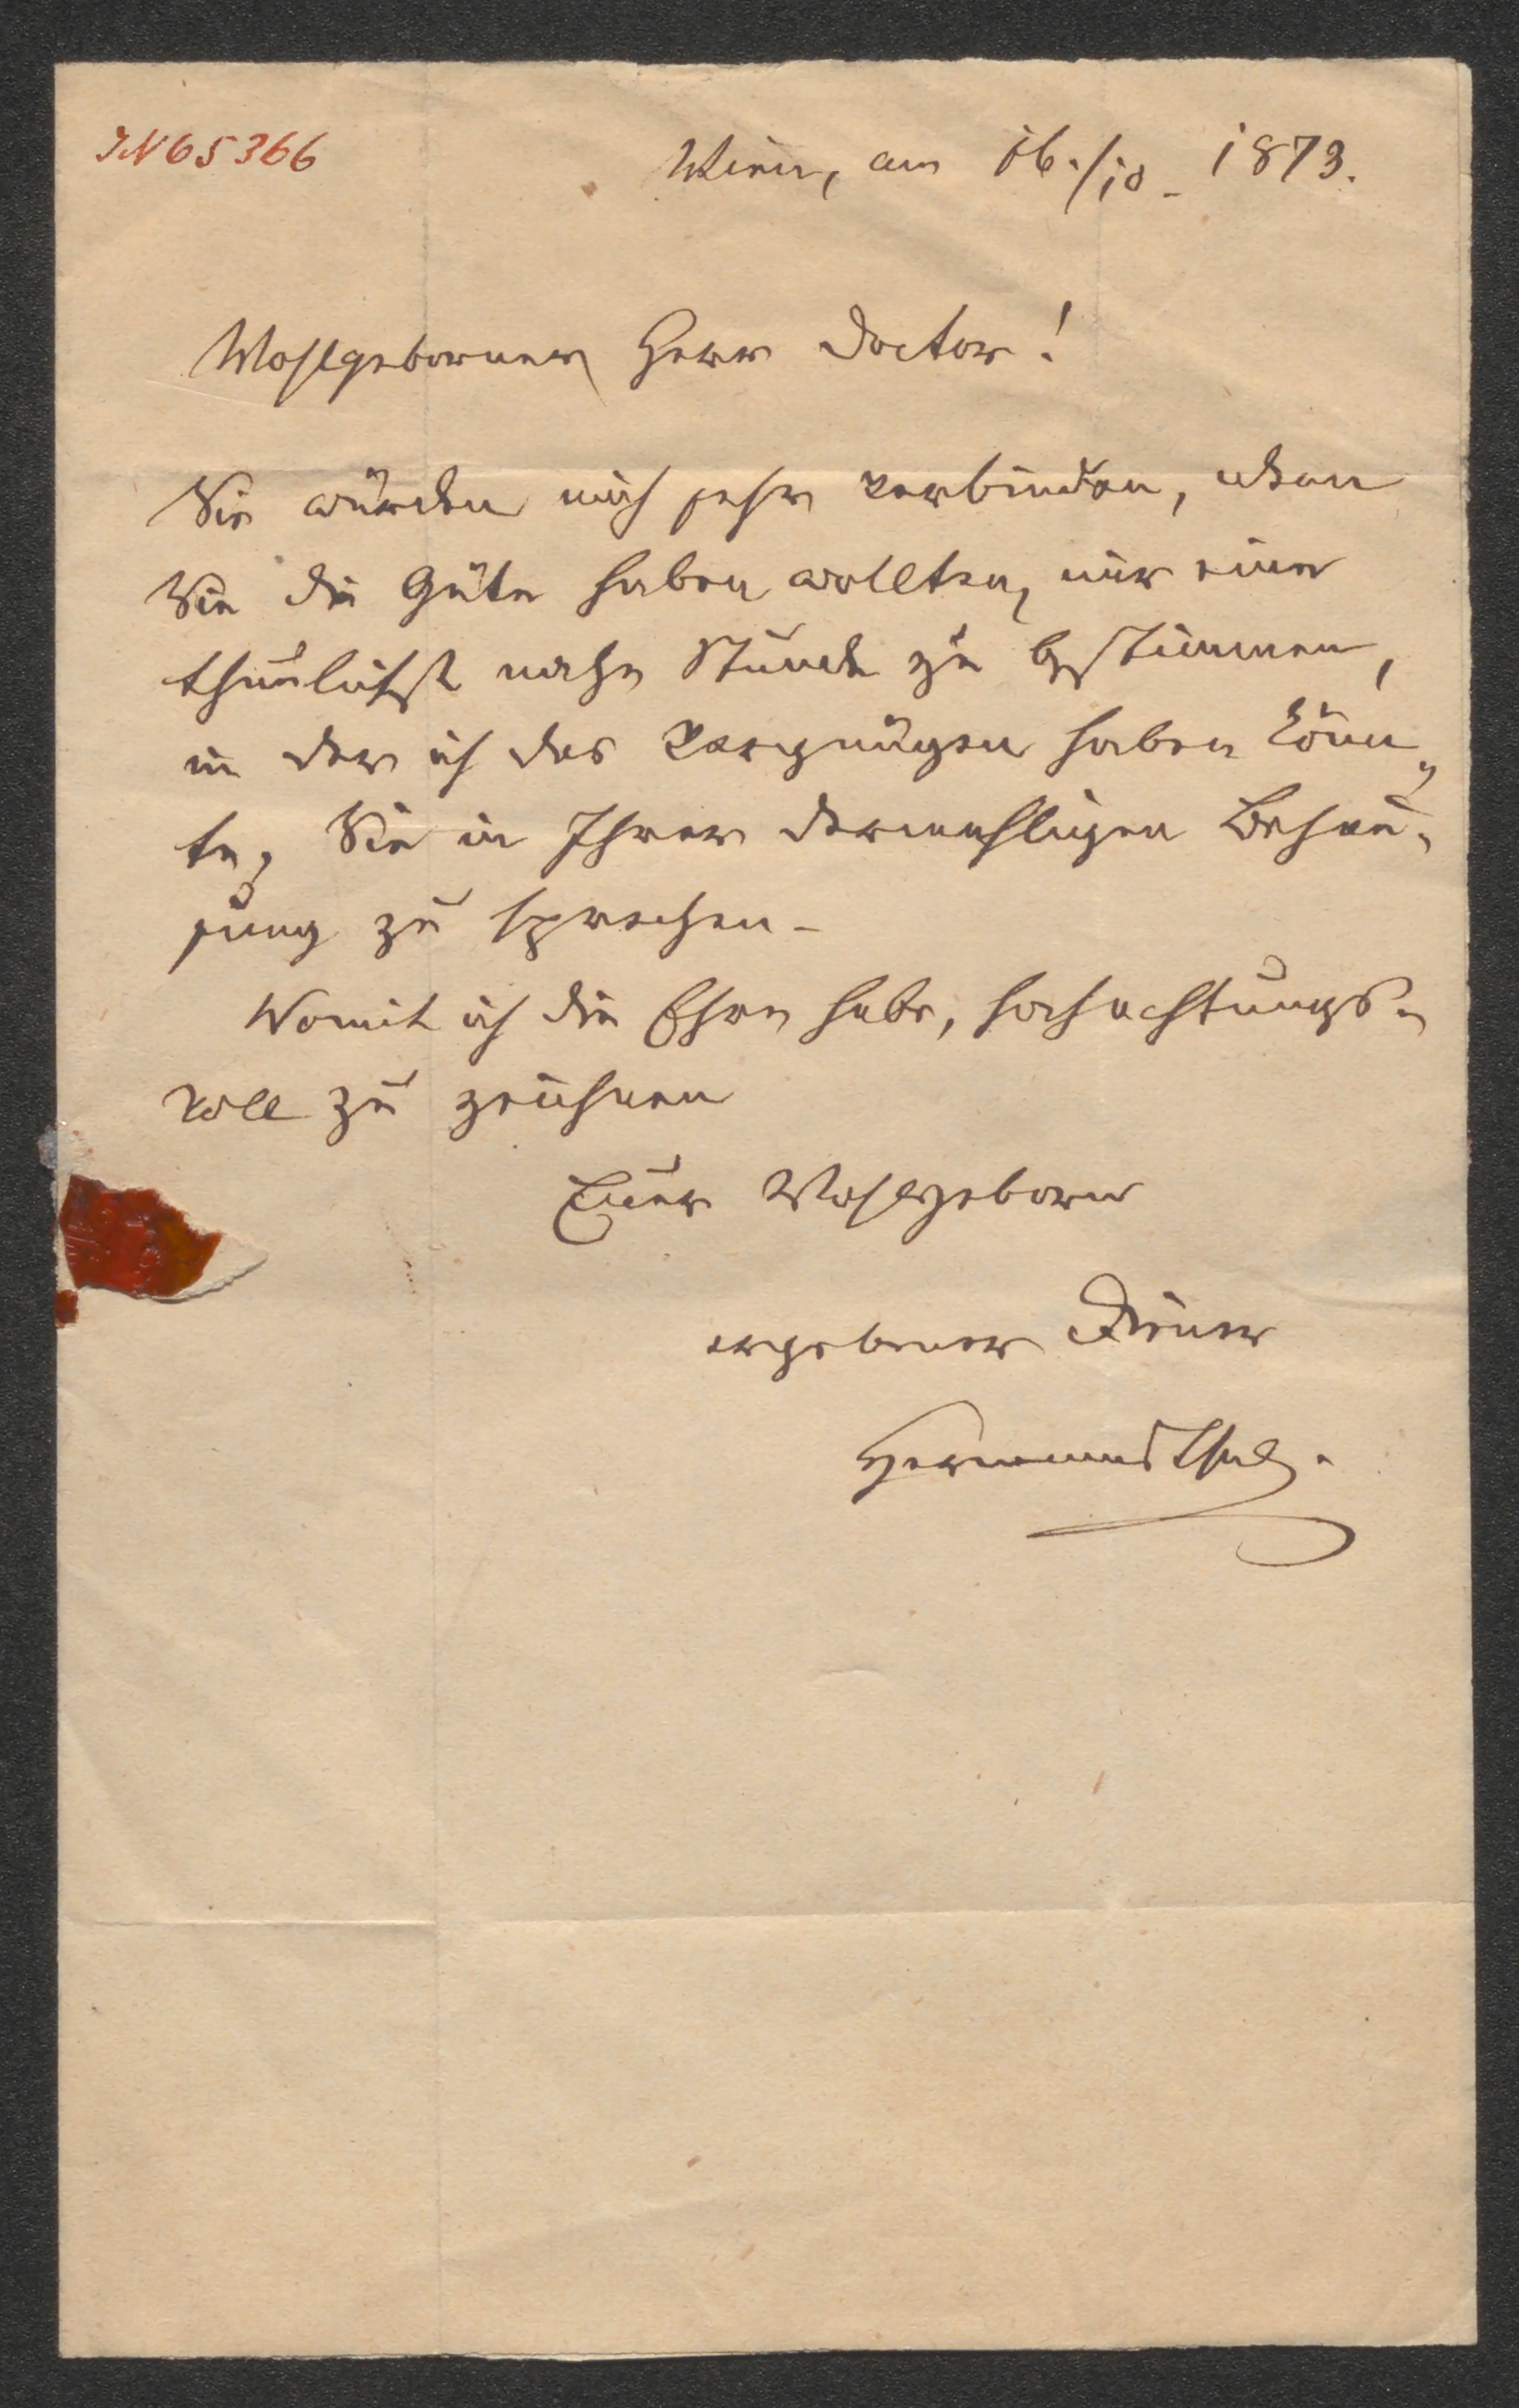 IN 65366
Wien, am 16./10. 1873.
Wohlgeborner Herr Doctor!
Sie würden mich sehr verbinden, wenn
Sie die Güte haben wollten, mir eine
thunlichst nahe Stunde zu bestimmen,
in der ich das Vergnügen haben könn-
te, Sie in Ihrer dermahligen Behau-
sung zu sprechen.
Womit ich die Ehre habe, hochachtungs-
voll zu zeichnen
Euer Wohlgeborn
ergebener Diener
Hermannsthal.